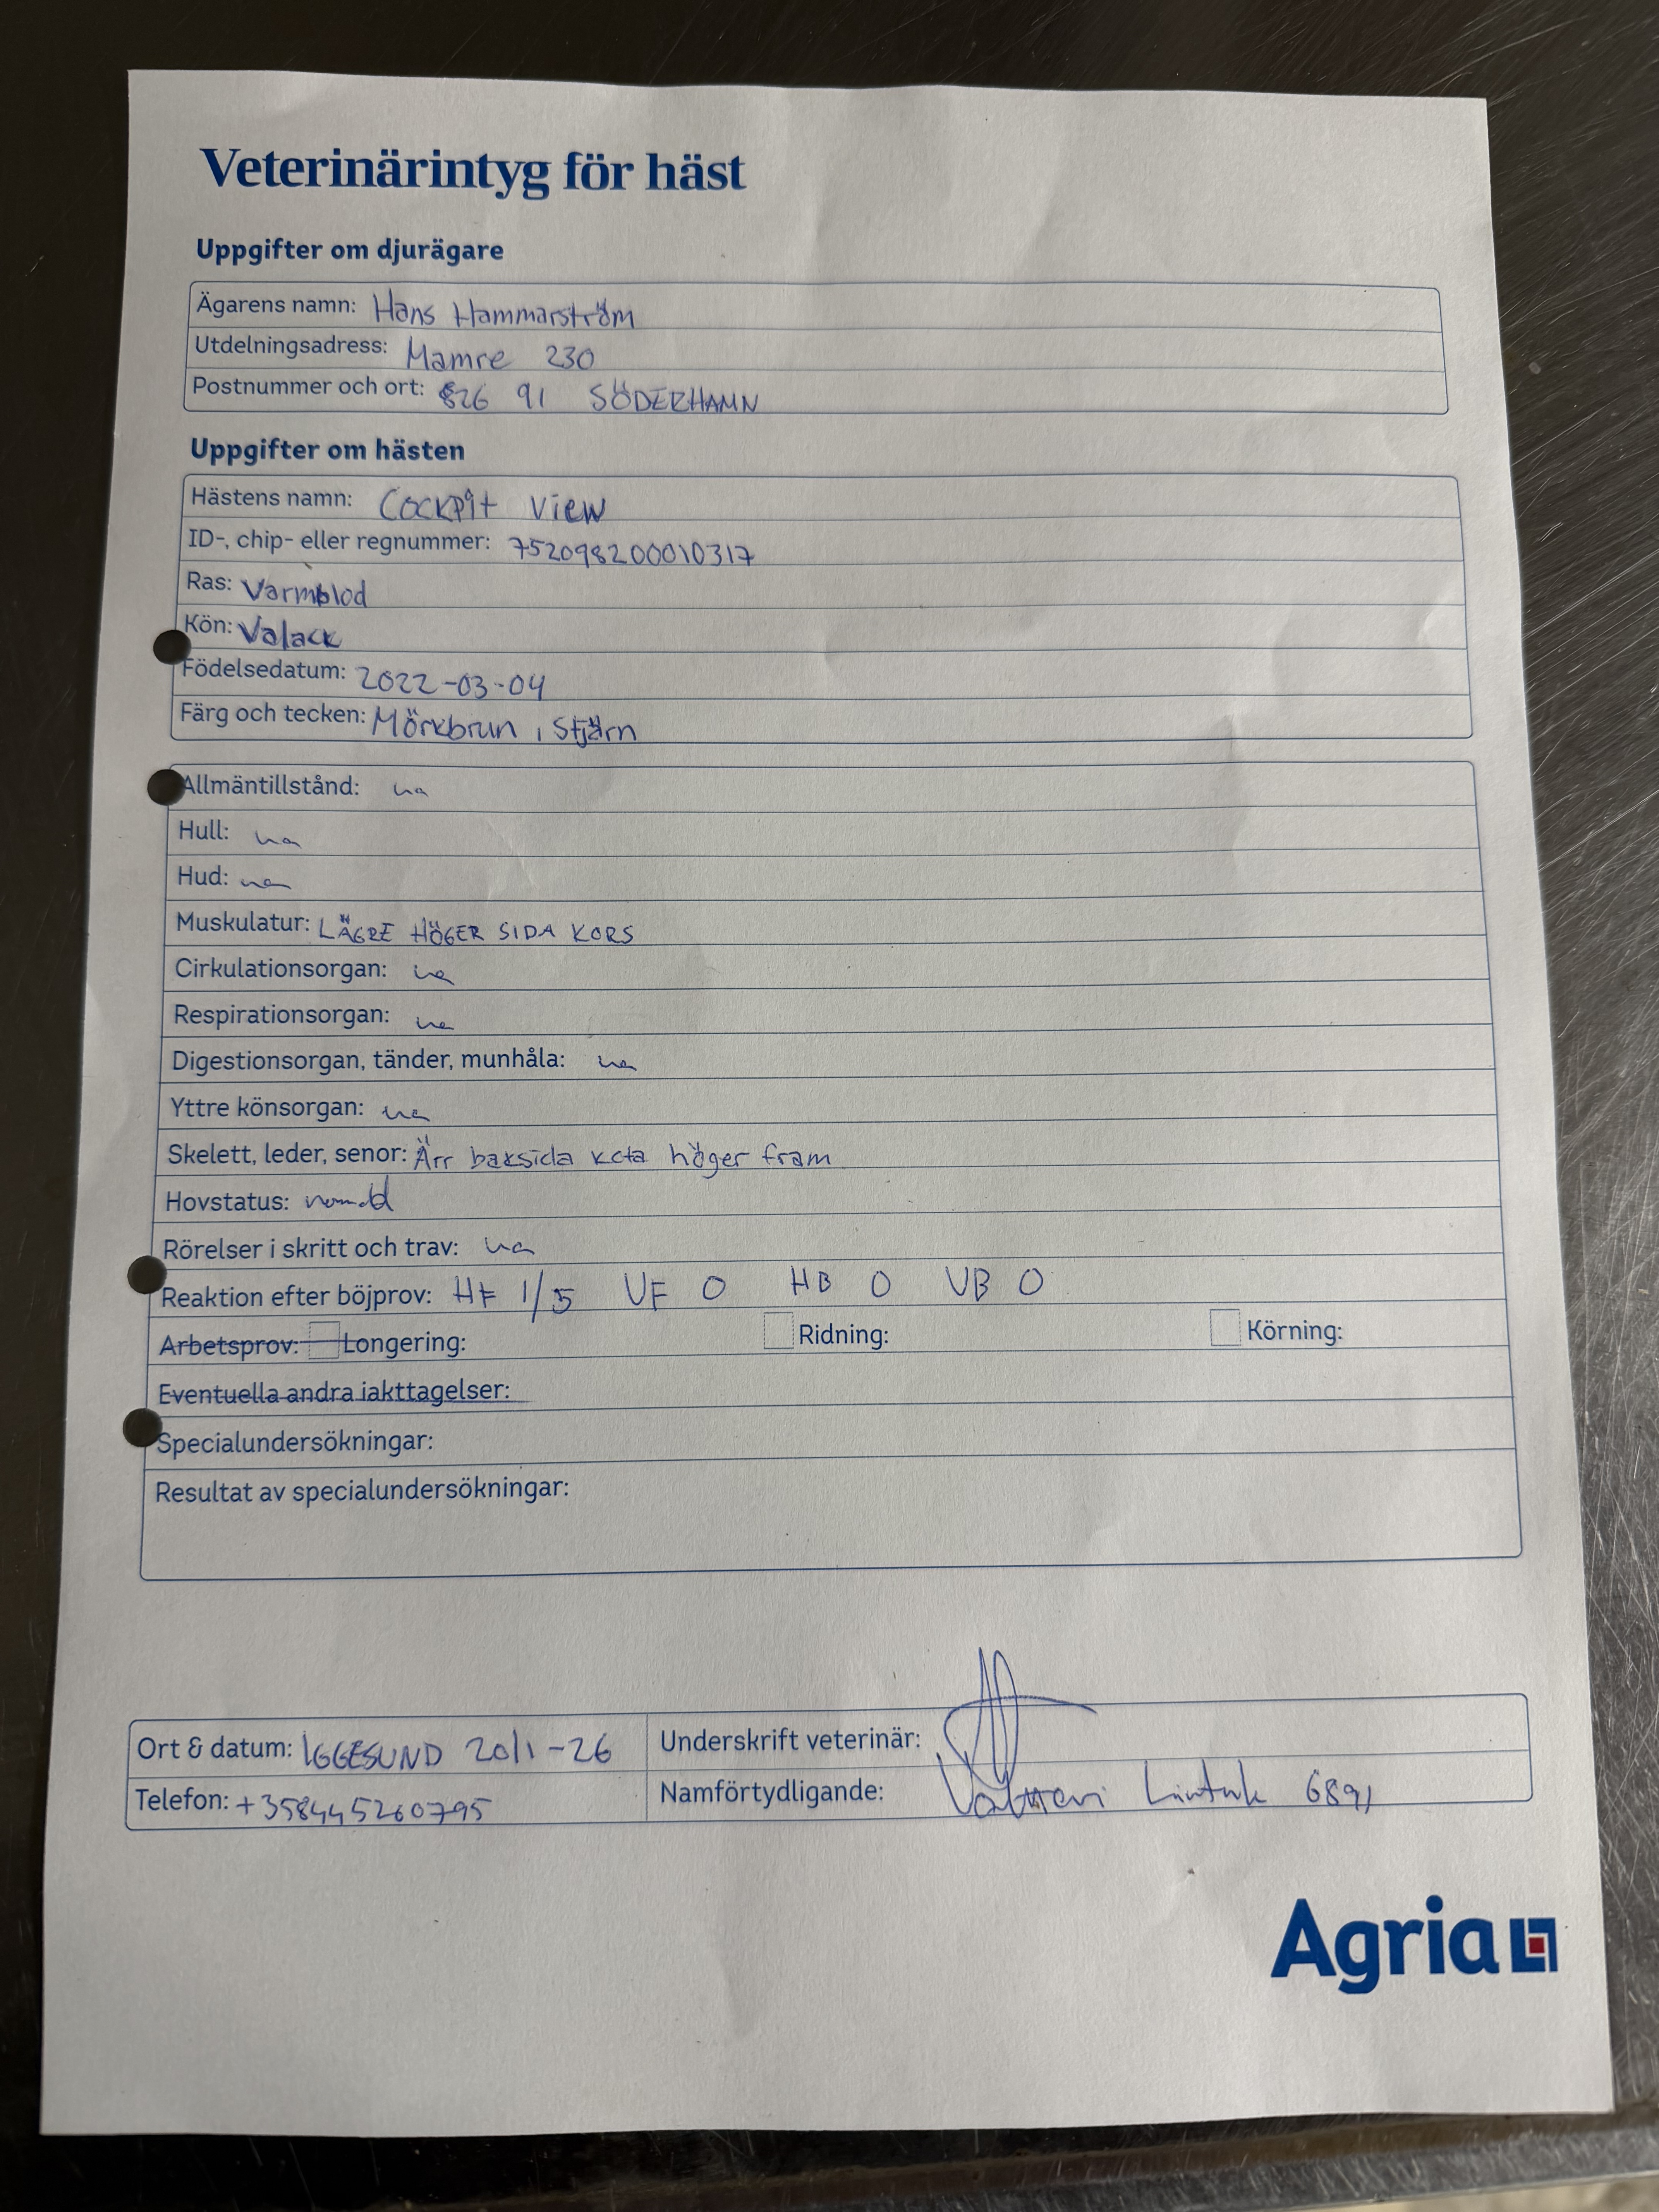 Veterinärintyg för häst
Uppgifter om djurägare
Ägarens namn: Hans Hammarström
Utdelningsadress: Mamre 230
Postnummer och ort: 826 91 SÖDERHAMN
Uppgifter om hästen
Hästens namn: Cockpit View
ID-, chip- eller regnummer: 752098200010317
Ras: Varmblod
Kön: Valack
Födelsedatum: 2022-03-04
Färg och tecken: Mörkbrun, Stjärn
Allmäntillstånd: ua
Hull: ua
Hud: ua
Muskulatur: LÄGRE HÖGER SIDA KORS
Cirkulationsorgan: ua
Respirationsorgan: ua
Digestionsorgan, tänder, munhåla: ua
Yttre könsorgan: ua
Skelett, leder, senor: Ärr baksida kota höger fram
Hovstatus: normal
Rörelser i skritt och trav: ua
Reaktion efter böjprov: HF 1/5 VF 0 HB 0 VB 0
Arbetsprov: Longering: Ridning: Körning:
Eventuella andra iakttagelser:
Specialundersökningar:
Resultat av specialundersökningar:
Ort & datum: IGGESUND 20/1-26 Underskrift veterinär:
Telefon: +358445260795 Namförtydligande: 6891
Agria